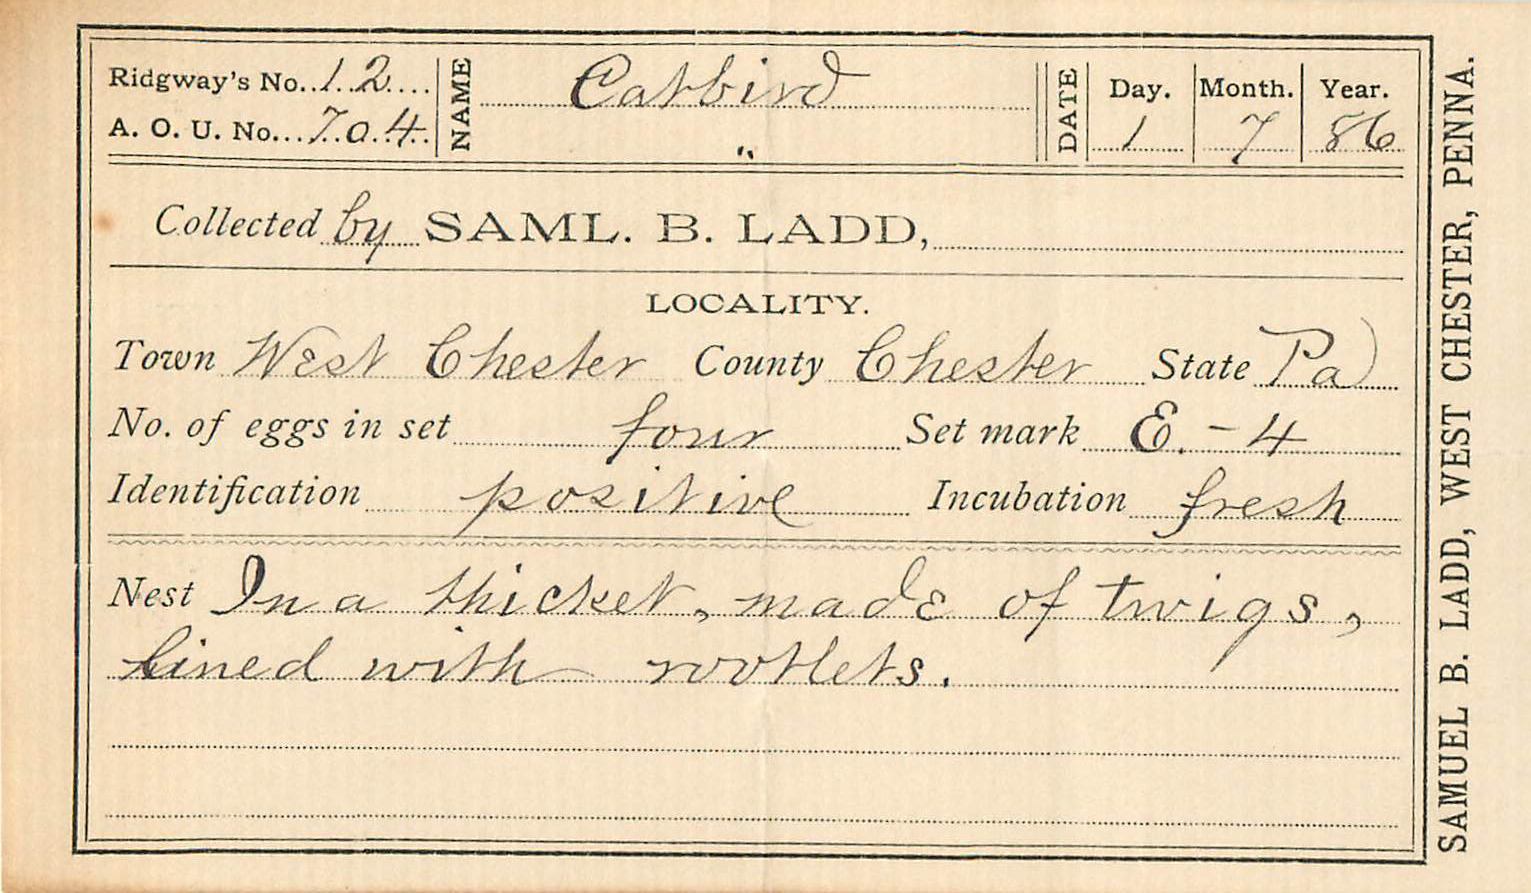 Ridgway's No. 12 NAME Catbird DATE Day. Month. Year.
A. O. U. No. 704 " 1 7 86
Collected by SAML. B. LADD,
LOCALITY.
Town West Chester County Chester State Pa
No. of eggs in set four Set mark E.-4
Identification positive Incubation fresh
Nest In a thicket, made of twigs,
lined with rootlets.
SAMUEL B. LADD, WEST CHESTER, PENNA.